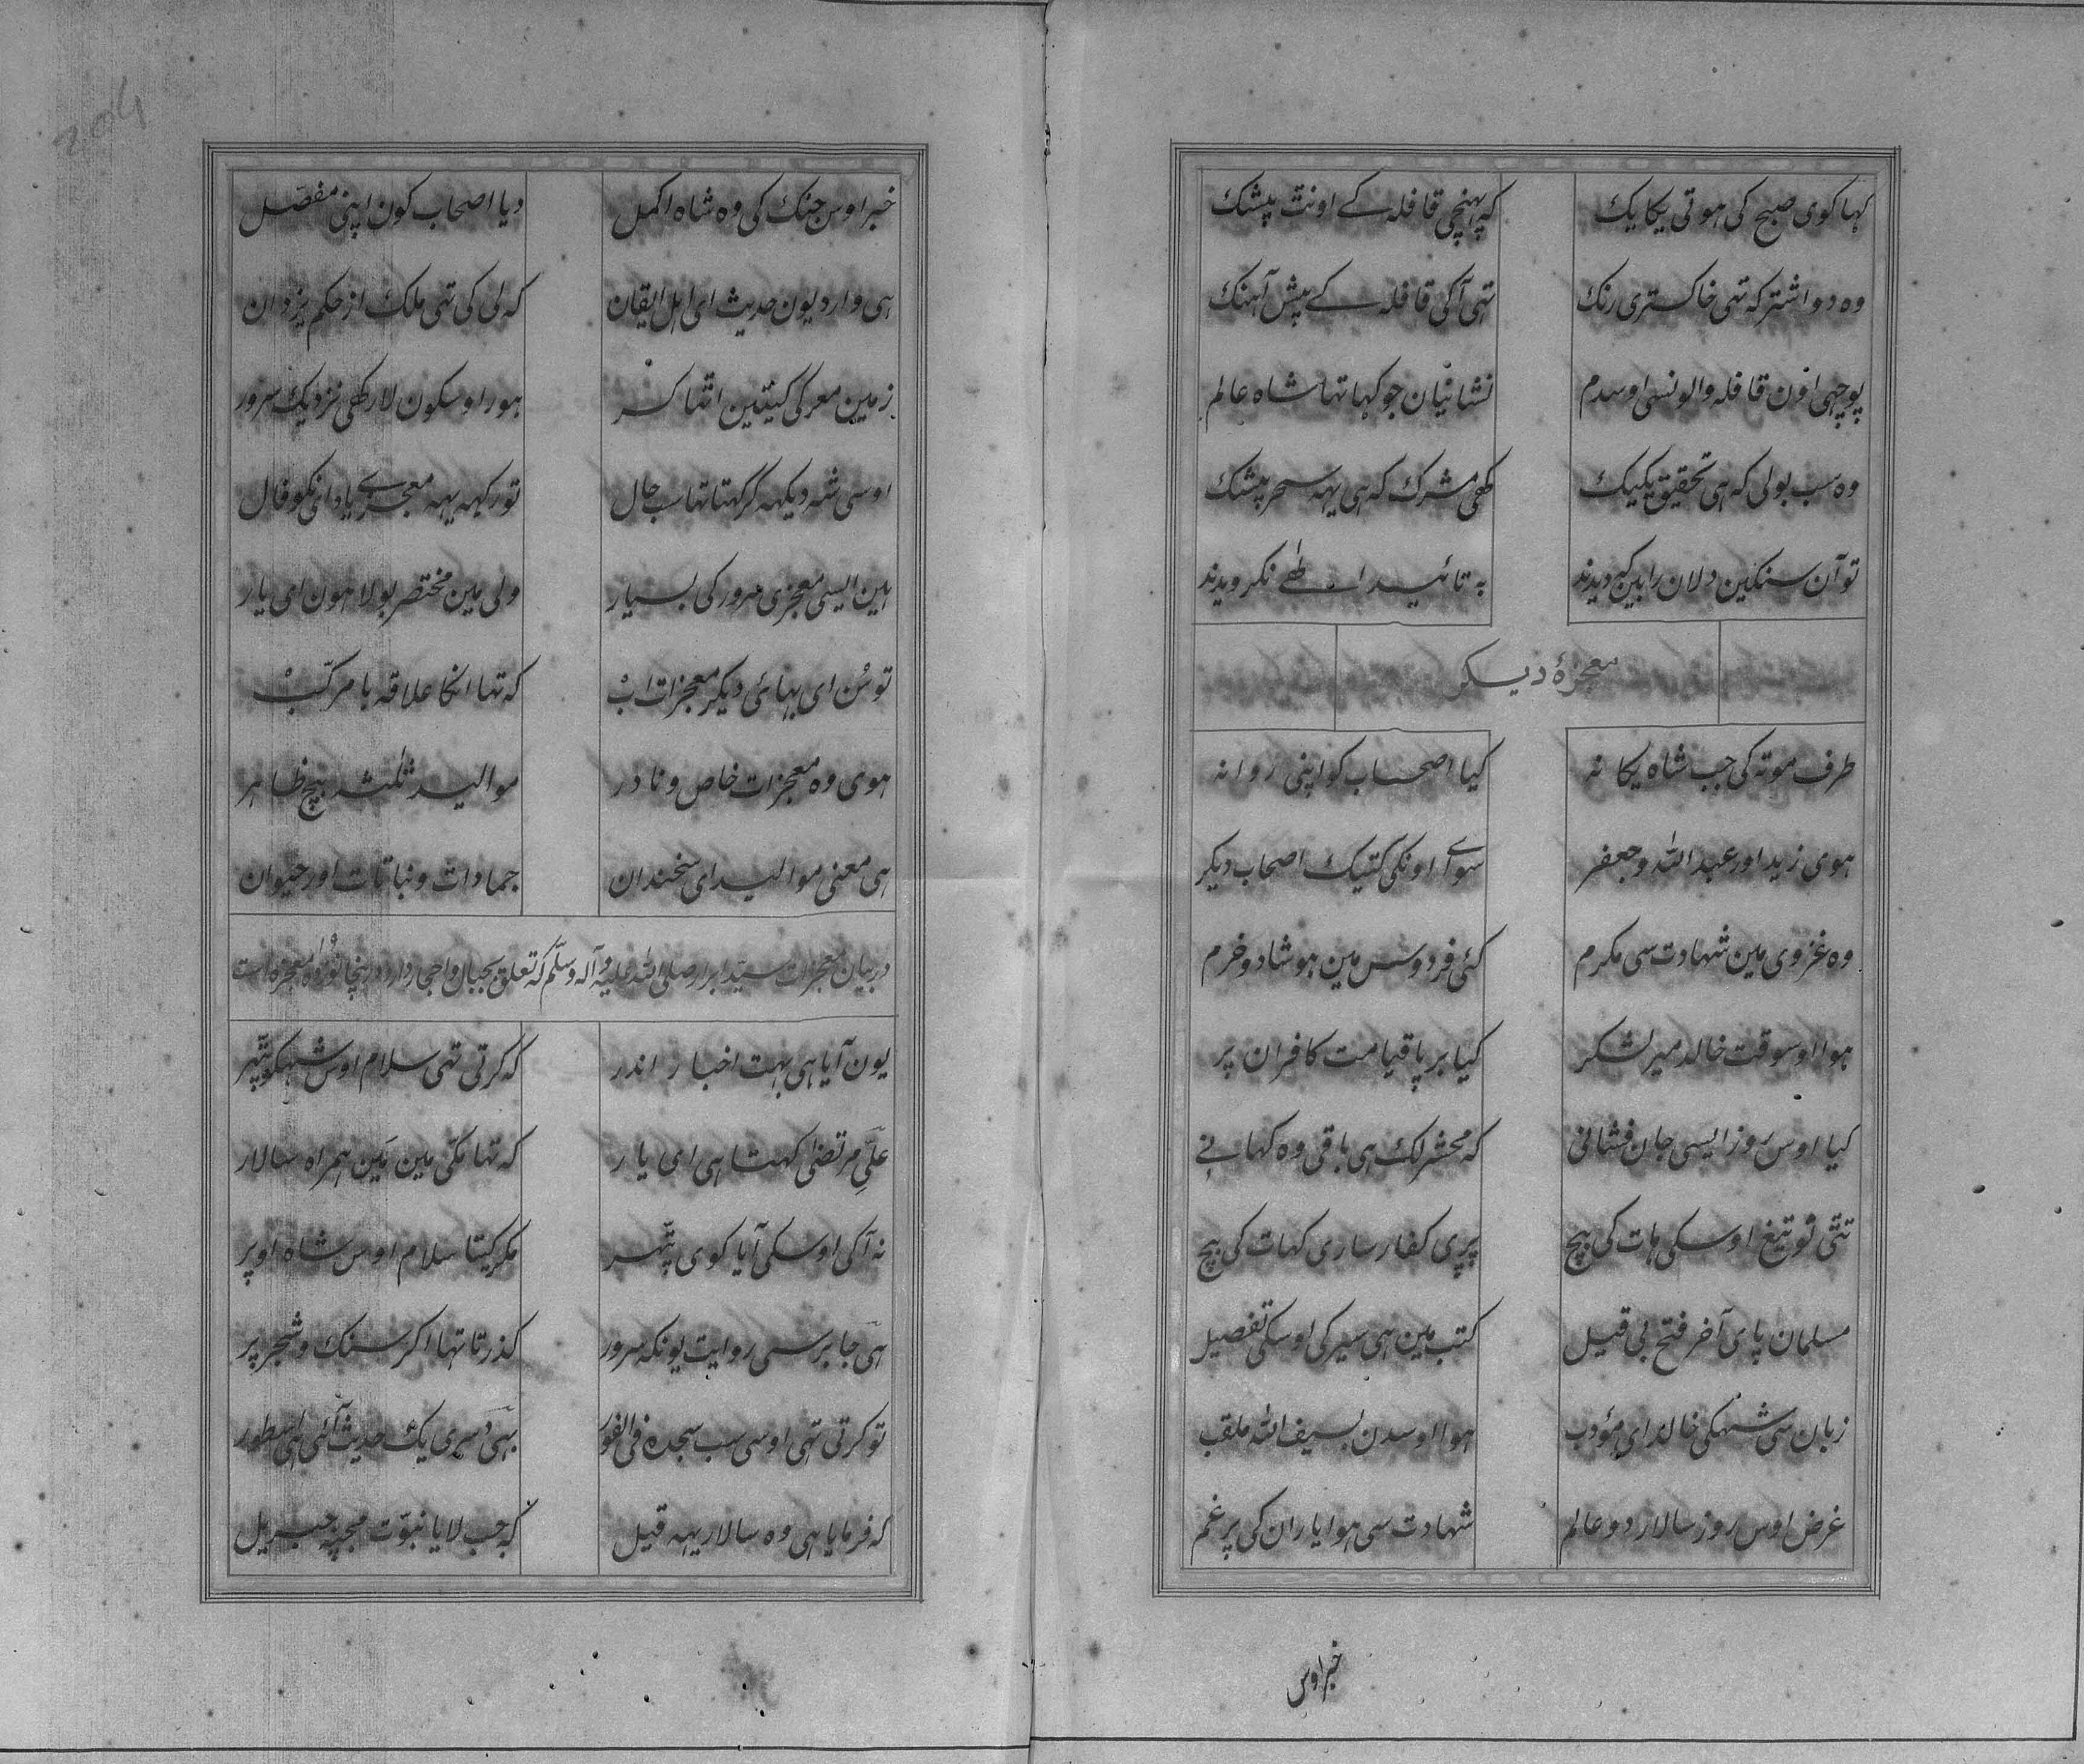 کہا کوی صبح کی ہوتی یکایک کہ پہنچی قافلہ کے اونت پیشک
وہ دو اشتر کہ تہی خاکستری رنک تہی آکی قافلہ کے پیش آہنک
پوچہی اون قافلہ والونسی اوسدم نشانیان جو کہا تہا شاہ عالم
وہ سب بولی کہ ہی تحقیق یکیک کھی مشرک کہ ہی یہہ سحر پیشک
تو آن سنکین دلان را بین کہ دیدند بہ تائید نکرویدند
معجزۂ دیکر
طرف موتہ کی جب شاہ یکانہ کیا اصحاب کو اپنی روانہ
ہوی زید اور عبد اللہ و جعفر سوے اونکی کتیک اصحاب دیکر
وہ غزوی مین شہادت سی مکرم کئی فردوس مین ہو شاد و خرم
ہوا اوسوقت خالد میر لشکر کیا برپا قیامت کافران پر
کیا اوس روز ایسی جان فشانی کہ محشر لک ہی باقی وہ کہانے
تتی تو تیغ اوسکی ہات کی بیچ پری کفار ساری کہات کی بیچ
مسلمان پای آخر فتح بی قیل کتب مین ہی سیر کی اوسکی تفصیل
زبان سی شہکی خالد ای مؤدب ہوا اوسدن بسیف اللہ ملقب
غرض اوس روز سالار دو عالم شہادت سی ہوا یاران کی پر غم
خبر اوس
204
خبر اوس جنک کی وہ شاہ اکمل دیا اصحاب کون اپنی مفصّل
ہی وارد یون حدیث ای اہل ایقان کہ لی کی تہی ملک از حکم یزدان
زمین معرکی کیتین اتہا کر ہور اوسکون لا رکہی نزدیک سرور
اوسی شہ دیکہہ کر کہتا تہا سب حال تو رکہہ یہہ معجزے یاد ای نکو فال
ہین ایسی معجزی سرور کی بسیار ولی مین مختصر بولا ہون ای یار
تو سُن ای بہائی دیکر معجزات ابْ کہ تہا انکا علاقہ با مرکّبْ
ہوی وہ معجزات خاص و نادر موالید ثلٰثہ بیچ ظاہر
ہی معنی موالید ای سخندان جمادات و نباتات اور حیوان
در بیان معجزات سیّد ابرار صلی اللہ علیہ و آلہ و سلّم کہ تعلق بجبال و احجار دارد و پنجا نُوزدہ معجزہ است
یون آیا ہی بہت اخبار اندر کہ کرتی تہی سلام اوس شہکو پتّہر
علیّ مرتضیٰ کہتا ہی ای یار کہ تہا مکّی مین مَین ہمراہ سالار
نہ آکی اوسکی آیا کوی پتّہر مکر کیتا سلام اوس شاہ اوپر
ہی جابر سی روایت یونکہ سرور کذرتا تہا اکر سنک و شجر پر
تو کرتی تہی اوسی سب سجدہ فی الفور بہی دسری یک حدیث آئی ہی اسطور
کہ فرمایا ہی وہ سالار یہہ قیل کہ جب لایا نبوّت مجپہ جبریل